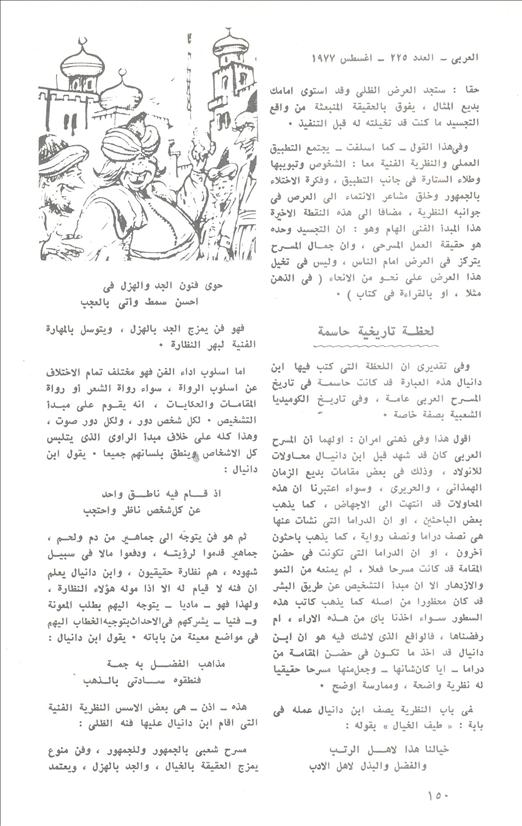 العربي - العدد ٢٢٥ - اغسطس ١٩٧٧
حقا : ستجد العرض الظلى وقد استوى امامك
بديع المثال ، يفوق بالحقيقة المنبعثة من واقع
التجسيد ما كنت قد تخيلته له قبل التنفيذ ٠
وفى هذا القول - كما اسلفت - يجتمع التطبيق
العملى والنظرية الفنية معا : الشخوص وتبويبها
وطلاء الستارة فى جانب التطبيق ، وفكرة الاختلاء
بالجمهور وخلق مشاعر الانتماء الى العرض فى
جوانبه النظرية ، مضافا الى هذه النقطة الاخيرة
هذا المبدأ الفنى الهام وهو : ان التجسيد وحده
هو حقيقة العمل المسرحى ، وان جمال المسرح
يتركز فى العرض امام الناس ، وليس فى تخيل
هذا العرض على نحو من الانحاء ( فى الذهن
مثلا ، او بالقراءة فى كتاب ) ٠
لحظة تاريخية حاسمة
وفى تقديرى ان اللحظة التى كتب فيها ابن
دانيال هذه العبارة قد كانت حاسمة فى تاريخ
المسرح العربى عامة ، وفى تاريخ الكوميديا
الشعبية بصفة خاصة ٠
اقول هذا وفى ذهنى امران : اولهما أن المسرح
العربى كان قد شهد قبل ابن دانيال محاولات
للانولاد ، وذلك فى بعض مقامات بديع الزمان
الهمذانى ، والحريرى ، وسواء اعتبرنا ان هذه
المحاولات قد انتهت الى الاجهاض ، كما يذهب
بعض الباحثين ، او ان الدراما التى نشأت عنها
هى نصف دراما ونصف رواية ، كما يذهب باحثون
آخرون ، او ان الدراما التى تكونت فى حضن
المقامة قد كانت مسرحا فعلا ، لم يمنعه من النمو
والازدهار الا ان مبدأ التشخيص عن طريق البشر
قد كان محظورا من اصله كما يذهب كاتب هذه
السطور سواء اخذنا باى من هذه الاراء ، ام
رفضناها ، فالواقع الذى لاشك فيه هو ان ابن
دانيال قد اخذ ما تكون فى حضن المقامة من
دراما - ايا كان شانها - وجعل منها مسرحا حقيقيا
له نظرية واضحة ، وممارسة اوضح ٠
فى باب النظرية يصف ابن دانيال عمله فى
بابة : « طيف الخيال » بقوله :
خيالنا هذا لاهل الرتب
والفضل والبذل لاهل الادب
حوى فنون الجد والهزل فى
احسن سمط واتى بالعجب
فهو فن يمزج الجد بالهزل ، ويتوسل بالمهارة
الفنية لبهر النظارة ٠
اما اسلوب اداء الفن فهو مختلف تمام الاختلاف
عن اسلوب الرواة ، سواء رواة الشعر أو رواة
المقامات والحكايات ، انه يقوم على مبدأ
التشخيص ٠ لكل شخص دور ، ولكل دور صوت ،
وهذا كله على خلاف مبدأ الراوى الذى يتلبس
كل الاشخاص وينطق بلسانهم جميعا ٠ يقول ابن
دانيال :
اذ قام فيه ناطق واحد
عن كل شخص ناظر واحتجب
ثم هو فن يتوجه الى جماهير من دم ولحم ،
جماهير قدموا لرؤيته ، ودفعوا مالا فى سبيل
شهوده ، هم نظارة حقيقيون ، وابن دانيال يعلم
ان فنه لا قيام له الا اذا موله هؤلاء النظارة ،
ولهذا فهو - ماديا - يتوجه اليهم بطلب المعونة
و - فنيا - يشركهم فى الاحداث بتوجيه الخطاب اليهم
فى مواضع معينة من باباته ٠ يقول ابن دانيال :
مذاهب الفضل به جمة
فنطقوه سادتى بالذهب
هذه - اذن - هى بعض الاسس النظرية الفنية
التى اقام ابن دانيال عليها فنه الظلى :
مسرح شعبى بالجمهور وللجمهور ، وفن منوع
يمزج الحقيقة بالخيال ، والجد بالهزل ، ويعتمد
١٥٠